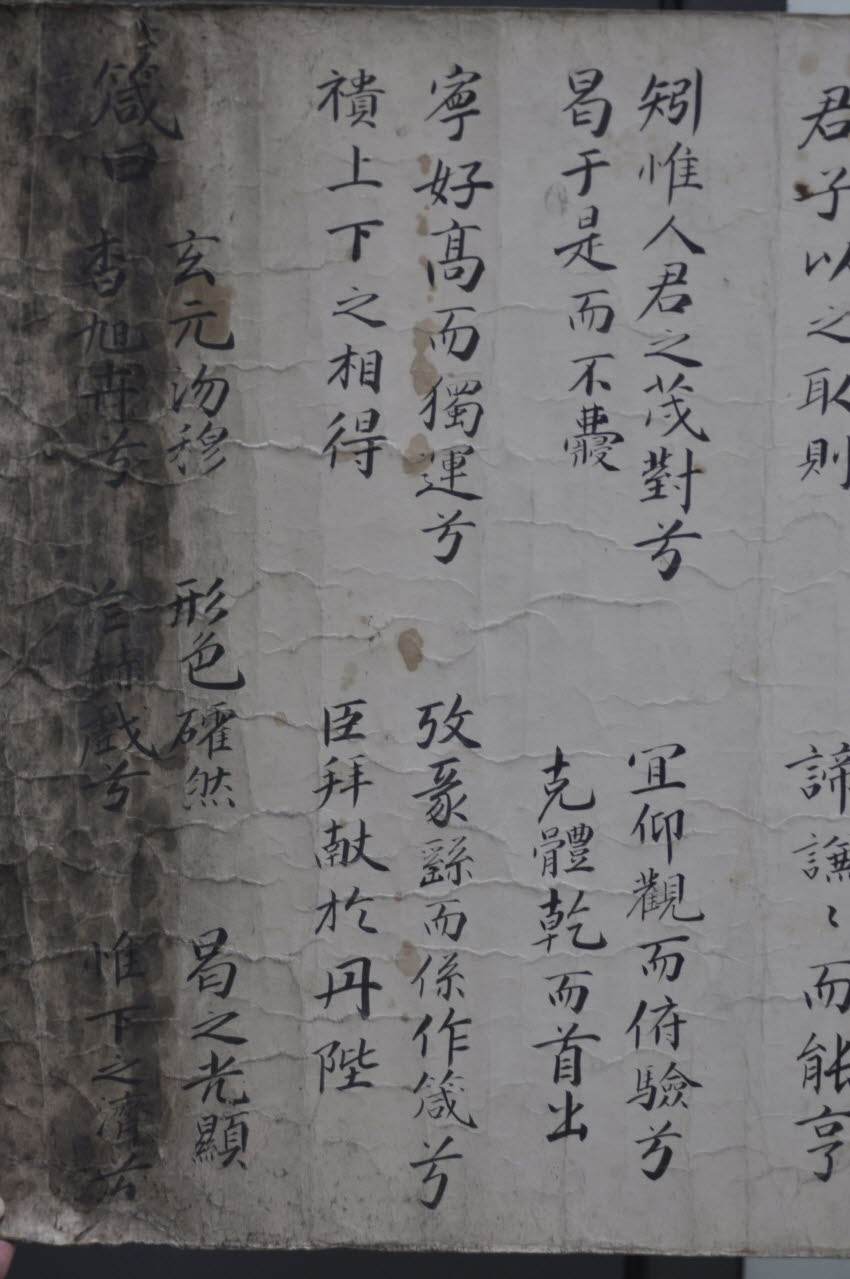 君子以之取則 諦譕〻而能亨
矧惟人君之茂對兮 宜仰觀而俯驗兮
曷于是而不 克體乾而首出
寧好高而獨運兮 攷彖繇而係作箴兮
上下之相得 臣拜献於丹陛
箴曰
玄元沕穆 形色確然 曷之光顯
杳旭卉兮 戲兮 惟下之濟兮